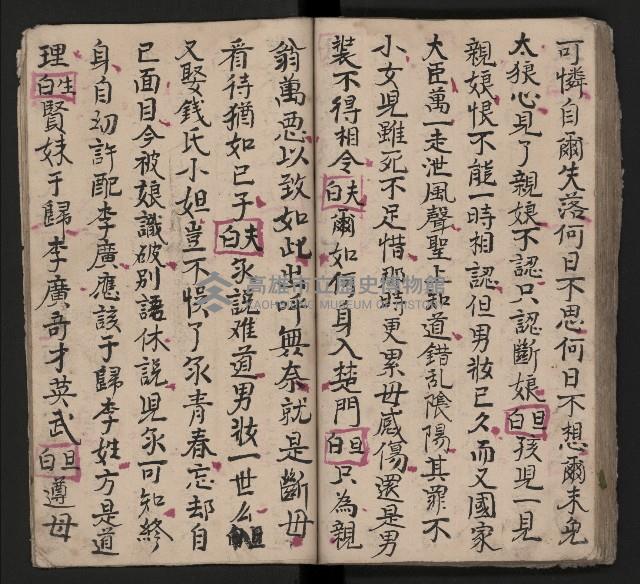 可憐自爾失落何日不思何日不想爾未免
太狠心見了親娘不認只認斷娘旦白孩兒一見
親娘恨不能一時相認但男妝已久而又國家
大臣萬一走泄風聲聖上知道錯乱陰陽其罪不
小女兒雖死不足惜那時更累母感傷還是男
裝不得相令夫白爾如何身入楚門旦白只為親
翁萬惡以致如此出 無奈就是斷母
看待猶如已子夫白永說难道男妝一世么
又娶錢氏小姐豈不悞了永青春忘却自
已面目今被娘識破別話休說兒永可知終
身自幼許配李廣應該于歸李姓方是道
理生白賢妹于歸李廣哥才英武旦白遵母
高雄市立歷史博物館
KAOHSIUNG MUSEUM OF HISTORY